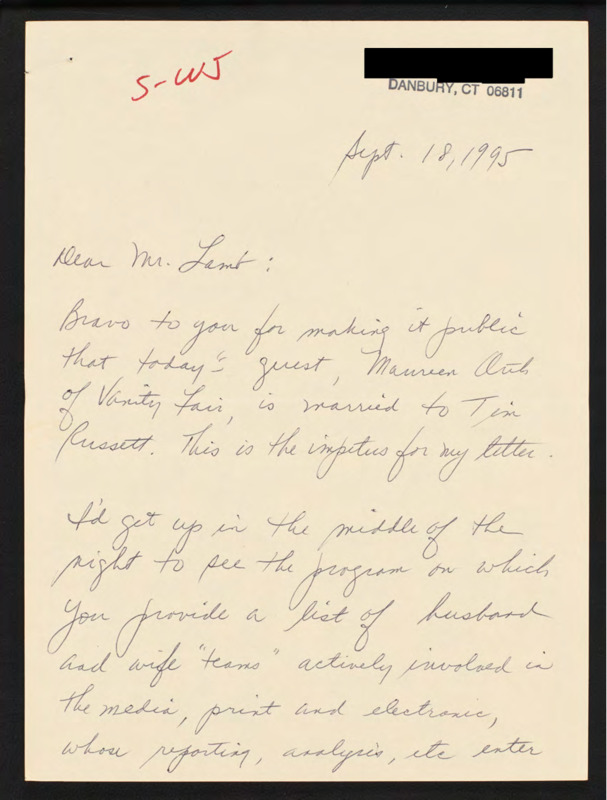 S-W5
DANBURY, CT 06811
Sept. 18, 1995
Dear Mr. Lamb:
Bravo to you for making it public
that today's guest, Maureen Orth
of Vanity Fair, is married to Tim
Russett. This is the impetus for my letter.
I'd get up in the middle of the
night to see the program on which
you provide a list of husband
and wife "teams" actively involved in
the media, print and electronic,
whose reporting, analysis, etc enter